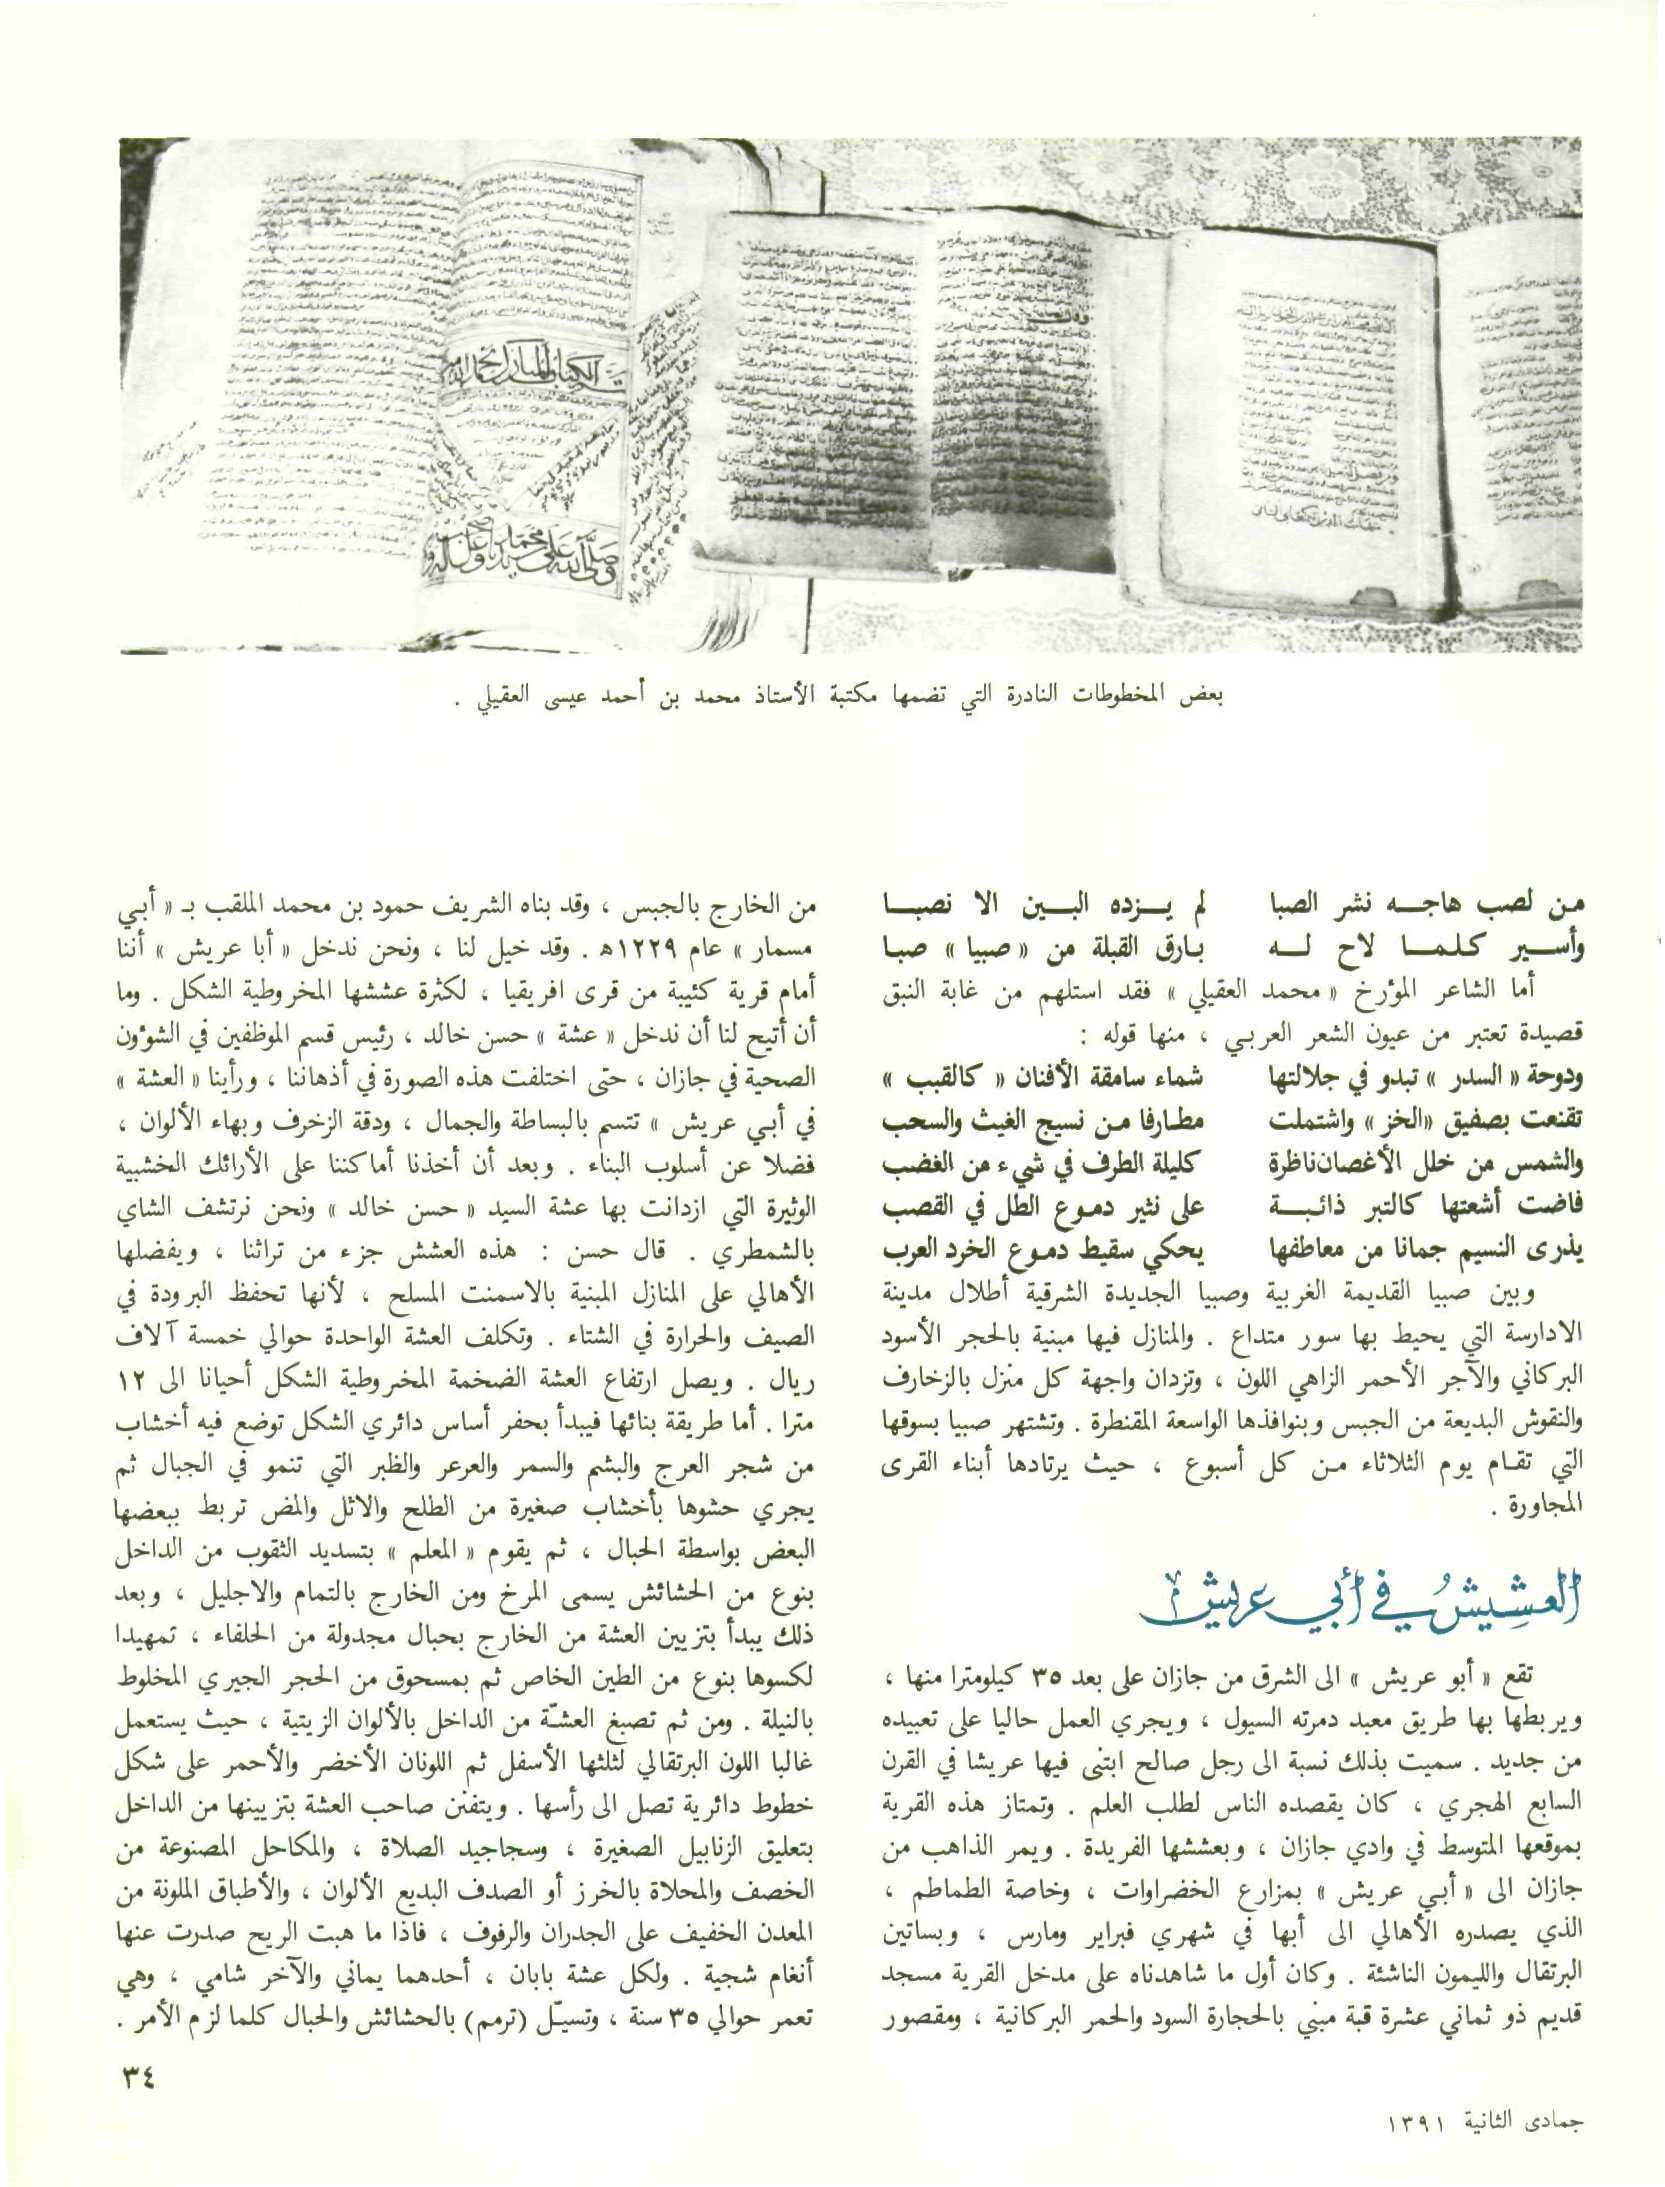 بعض المخطوطات النادرة التي تضمها مكتبة الأستاذ محمد بن أحمد عيسى العقيلي .
من لصب هاجه نشر الصبا لم يزده البين الا نصبا
وأسير كلما لاح له بارق القبلة من « صبيا » صبا
أما الشاعر المؤرخ « محمد العقيلي » فقد استلهم من غابة النبق
قصيدة تعتبر من عيون الشعر العربي ، منها قوله :
ودوحة « السدر » تبدو في جلالتها شماء سامقة الأفنان « كالقبب »
تقنعت بصفيق «الخز» واشتملت مطارفا من نسيج الغيث والسحب
والشمس من خلل الأغصان ناظرة كليلة الطرف في شيء من الغضب
فاضت أشعتها كالتبر ذائبة على نثير دموع الطل في القصب
يذرى النسيم جمانا من معاطفها يحكي سقيط دموع الخرد العرب
وبين صبيا القديمة الغربية وصبيا الجديدة الشرقية أطلال مدينة
الادارسة التي يحيط بها سور متداع . والمنازل فيها مبنية بالحجر الأسود
البركاني والآجر الأحمر الزاهي اللون ، وتزدان واجهة كل منزل بالزخارف
والنقوش البديعة من الجبس وبنوافذها الواسعة المقنطرة . وتشتهر صبيا بسوقها
التي تقام يوم الثلاثاء من كل أسبوع ، حيث يرتادها أبناء القرى
المجاورة .
العشيش في أبي عريش
تقع « أبو عريش » الى الشرق من جازان على بعد ٣٥ كيلومترا منها ،
ويربطها بها طريق معبد دمرته السيول ، ويجري العمل حاليا على تعبيده
من جديد . سميت بذلك نسبة الى رجل صالح ابتنى فيها عريشا في القرن
السابع الهجري ، كان يقصده الناس لطلب العلم . وتمتاز هذه القرية
بموقعها المتوسط في وادي جازان ، وبعششها الفريدة . ويمر الذاهب من
جازان الى « أبي عريش » بمزارع الخضراوات ، وخاصة الطماطم ،
الذي يصدره الأهالي الى أبها في شهري فبراير ومارس ، وبساتين
البرتقال والليمون الناشئة . وكان أول ما شاهدناه على مدخل القرية مسجد
قديم ذو ثماني عشرة قبة مبني بالحجارة السود والحمر البركانية ، ومقصور
من الخارج بالجبس ، وقد بناه الشريف حمود بن محمد الملقب بـ « أبي
مسمار » عام ١٢٢٩ه . وقد خيل لنا ، ونحن ندخل « أبا عريش » أننا
أمام قرية كئيبة من قرى افريقيا ، لكثرة عششها المخروطية الشكل . وما
أن أتيح لنا أن ندخل « عشة » حسن خالد ، رئيس قسم الموظفين في الشؤون
الصحية في جازان ، حتى اختلفت هذه الصورة في أذهاننا ، ورأينا « العشة »
في أبي عريش » تتسم بالبساطة والجمال ، ودقة الزخرف وبهاء الألوان ،
فضلا عن أسلوب البناء . وبعد أن أخذنا أماكننا على الأرائك الخشبية
الوثيرة التي ازدانت بها عشة السيد « حسن خالد » ونحن نرتشف الشاي
بالشمطري . قال حسن : هذه العشش جزء من تراثنا ، ويفضلها
الأهالي على المنازل المبنية بالاسمنت المسلح ، لأنها تحفظ البرودة في
الصيف والحرارة في الشتاء . وتكلف العشة الواحدة حوالي خمسة آلاف
ريال . ويصل ارتفاع العشة الضخمة المخروطية الشكل أحيانا الى ١٢
مترا . أما طريقة بنائها فيبدأ بحفر أساس دائري الشكل توضع فيه أخشاب
من شجر العرج والبشم والسمر والعرعر والظبر التي تنمو في الجبال ثم
يجري حشوها بأخشاب صغيرة من الطلح والاثل والمض تربط ببعضها
البعض بواسطة الحبال ، ثم يقوم « المعلم » بتسديد الثقوب من الداخل
بنوع من الحشائش يسمى المرخ ومن الخارج بالتمام والاجليل ، وبعد
ذلك يبدأ بتزيين العشة من الخارج بحبال مجدولة من الحلفاء ، تمهيدا
لكسوها بنوع من الطين الخاص ثم بمسحوق من الحجر الجيري المخلوط
بالنيلة . ومن ثم تصبغ العشّة من الداخل بالألوان الزيتية ، حيث يستعمل
غالبا اللون البرتقالي لثلثها الأسفل ثم اللونان الأخضر والأحمر على شكل
خطوط دائرية تصل الى رأسها . ويتفنن صاحب العشة بتزيينها من الداخل
بتعليق الزنابيل الصغيرة ، وسجاجيد الصلاة ، والمكاحل المصنوعة من
الخصف والمحلاة بالخرز أو الصدف البديع الألوان ، والأطباق الملونة من
المعدن الخفيف على الجدران والرفوف ، فاذا ما هبت الريح صدرت عنها
أنغام شجية . ولكل عشة بابان ، أحدهما يماني والآخر شامي ، وهي
تعمر حوالي ٣٥ سنة ، وتسيّل (ترمم) بالحشائش والحبال كلما لزم الأمر .
٣٤
جمادى الثانية ١٣٩١